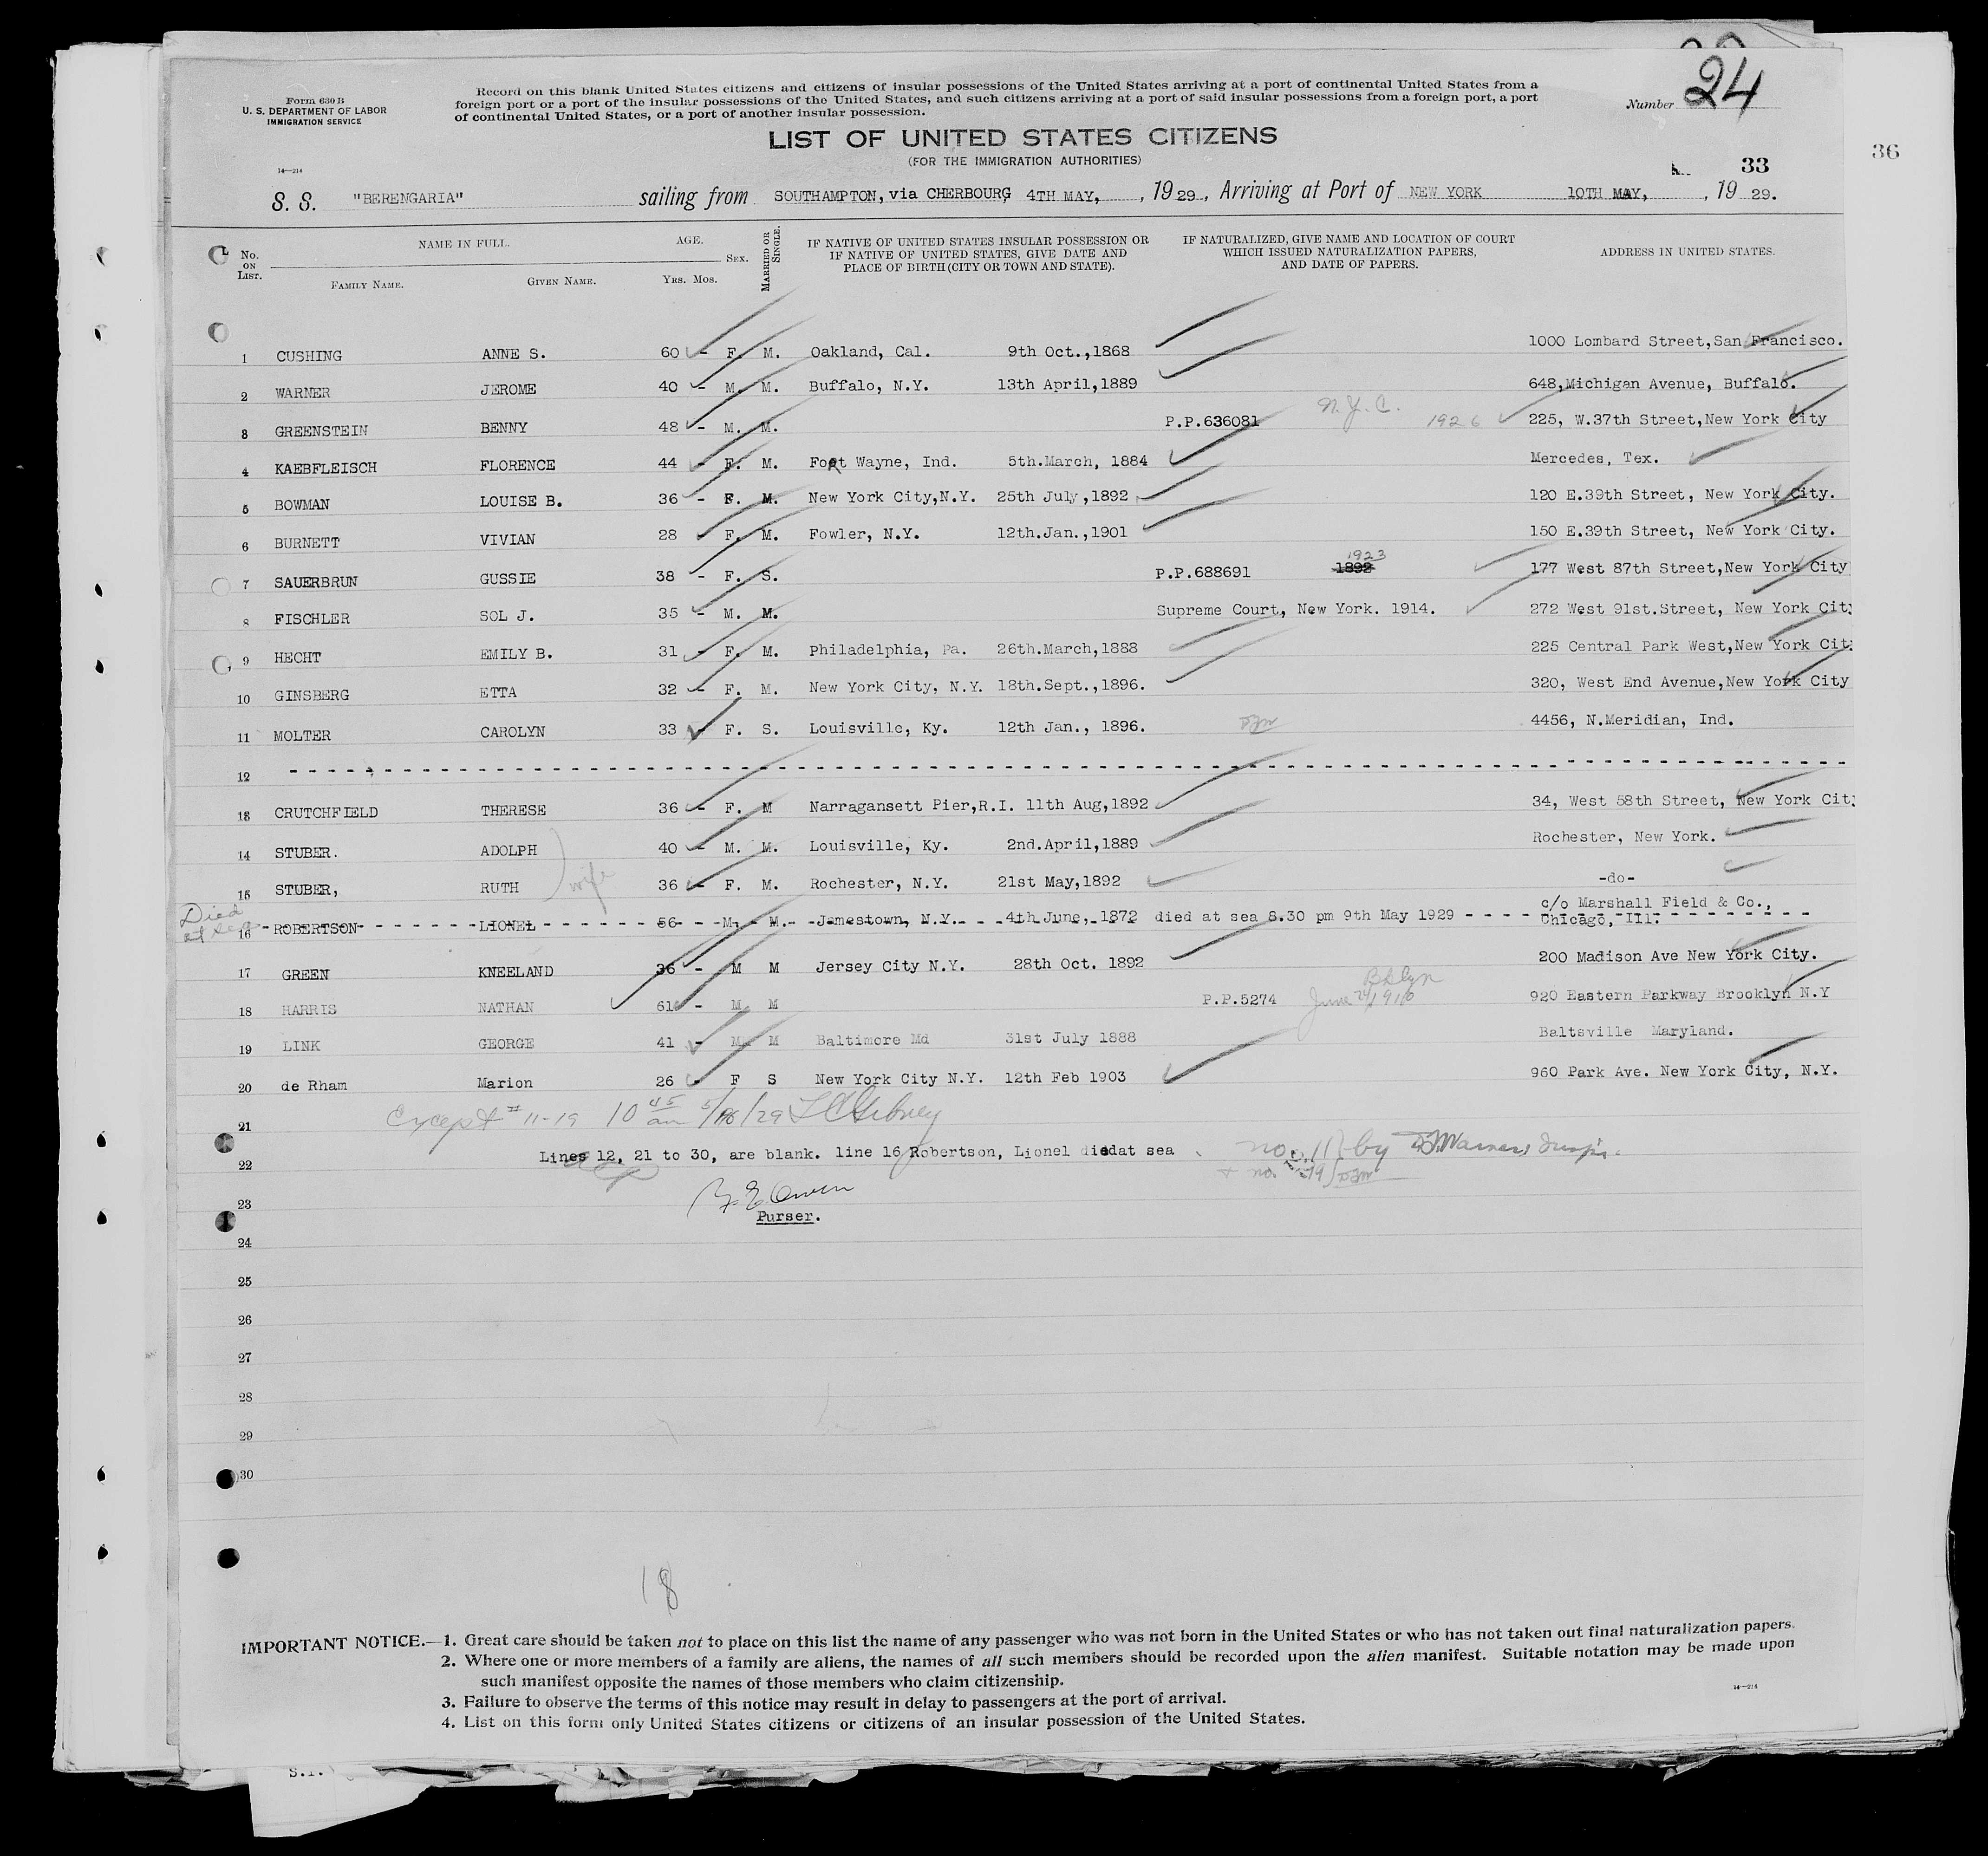 Form 630 B
U. S. DEPARTMENT OF LABOR
IMMIGRATION SERVICE
Record on this blank United States citizens and citizens of insular possessions of the United States arriving at a port of continental United States from a
foreign port or a port of the insular possessions of the United States, and such citizens arriving at a port of said insular possessions from a foreign port, a port
of continental United States, or a port of another insular possession.
Number 24
LIST OF UNITED STATES CITIZENS
(FOR THE IMMIGRATION AUTHORITIES)
36
33
14—214
S. S. "BERENGARIA" sailing from SOUTHAMPTON, via CHERBOURG, 4TH MAY, , 19 29, Arriving at Port of NEW YORK 10TH MAY, , 19 29.
No. ON LIST. NAME IN FULL. FAMILY NAME. GIVEN NAME. AGE. YRS. MOS. SEX. MARRIED OR SINGLE. IF NATIVE OF UNITED STATES INSULAR POSSESSION OR IF NATIVE OF UNITED STATES, GIVE DATE AND PLACE OF BIRTH (CITY OR TOWN AND STATE). IF NATURALIZED, GIVE NAME AND LOCATION OF COURT WHICH ISSUED NATURALIZATION PAPERS, AND DATE OF PAPERS. ADDRESS IN UNITED STATES.
1 CUSHING ANNE S. 60 - F. M. Oakland, Cal. 9th Oct.,1868 1000 Lombard Street,San Francisco.
2 WARNER JEROME 40 - M. M. Buffalo, N.Y. 13th April,1889 648,Michigan Avenue, Buffalo.
3 GREENSTEIN BENNY 48 - M. M. P.P.636081 N.Y.C. 1926 225, W.37th Street,New York City
4 KAEBFLEISCH FLORENCE 44 - F. M. Fort Wayne, Ind. 5th.March, 1884 Mercedes, Tex.
5 BOWMAN LOUISE B. 36 - F. M. New York City,N.Y. 25th July,1892 120 E.39th Street, New York City.
6 BURNETT VIVIAN 28 - F. M. Fowler, N.Y. 12th.Jan.,1901 150 E.39th Street, New York City.
7 SAUERBRUN GUSSIE 38 - F. S. P.P.688691 1892 1923 177 West 87th Street,New York City
8 FISCHLER SOL J. 35 - M. M. Supreme Court, New York. 1914. 272 West 91st.Street, New York City
9 HECHT EMILY B. 31 - F. M. Philadelphia, Pa. 26th.March,1888 225 Central Park West,New York Cit
10 GINSBERG ETTA 32 - F. M. New York City, N.Y. 18th.Sept.,1896. 320, West End Avenue,New York City
11 MOLTER CAROLYN 33 - F. S. Louisville, Ky. 12th Jan., 1896. 4456, N.Meridian, Ind.
12
13 CRUTCHFIELD THERESE 36 - F. M Narragansett Pier,R.I. 11th Aug,1892 34, West 58th Street, New York City
14 STUBER. ADOLPH 40 - M. M. Louisville, Ky. 2nd.April,1889 Rochester, New York.
15 STUBER, RUTH wife 36 - F. M. Rochester, N.Y. 21st May,1892 -do-
Died at sea
16 ROBERTSON LIONEL 56 - M. M. Jamestown, N.Y. 4th June, 1872 died at sea 8.30 pm 9th May 1929 c/o Marshall Field & Co., Chicago, Ill.
17 GREEN KNEELAND 36 - M M Jersey City N.Y. 28th Oct. 1892 200 Madison Ave New York City.
18 HARRIS NATHAN 61 - M M P.P.5274 June 1910 Bklyn 920 Eastern Parkway Brooklyn N.Y
19 LINK GEORGE 41 - M M Baltimore Md 31st July 1888 Baltsville Maryland.
20 de Rham Marion 26 - F S New York City N.Y. 12th Feb 1903 960 Park Ave. New York City, N.Y.
21 Except # 11-19 10 45 am 5/10/29
22 Lines 12, 21 to 30, are blank. line 16 Robertson, Lionel died at sea no. 11 by Inspr.
& no. 19
23 Owen
Purser.
24
25
26
27
28
29
30
18
IMPORTANT NOTICE.—1. Great care should be taken not to place on this list the name of any passenger who was not born in the United States or who has not taken out final naturalization papers.
2. Where one or more members of a family are aliens, the names of all such members should be recorded upon the alien manifest. Suitable notation may be made upon
such manifest opposite the names of those members who claim citizenship.
3. Failure to observe the terms of this notice may result in delay to passengers at the port of arrival.
4. List on this form only United States citizens or citizens of an insular possession of the United States.
14—214
S.I.